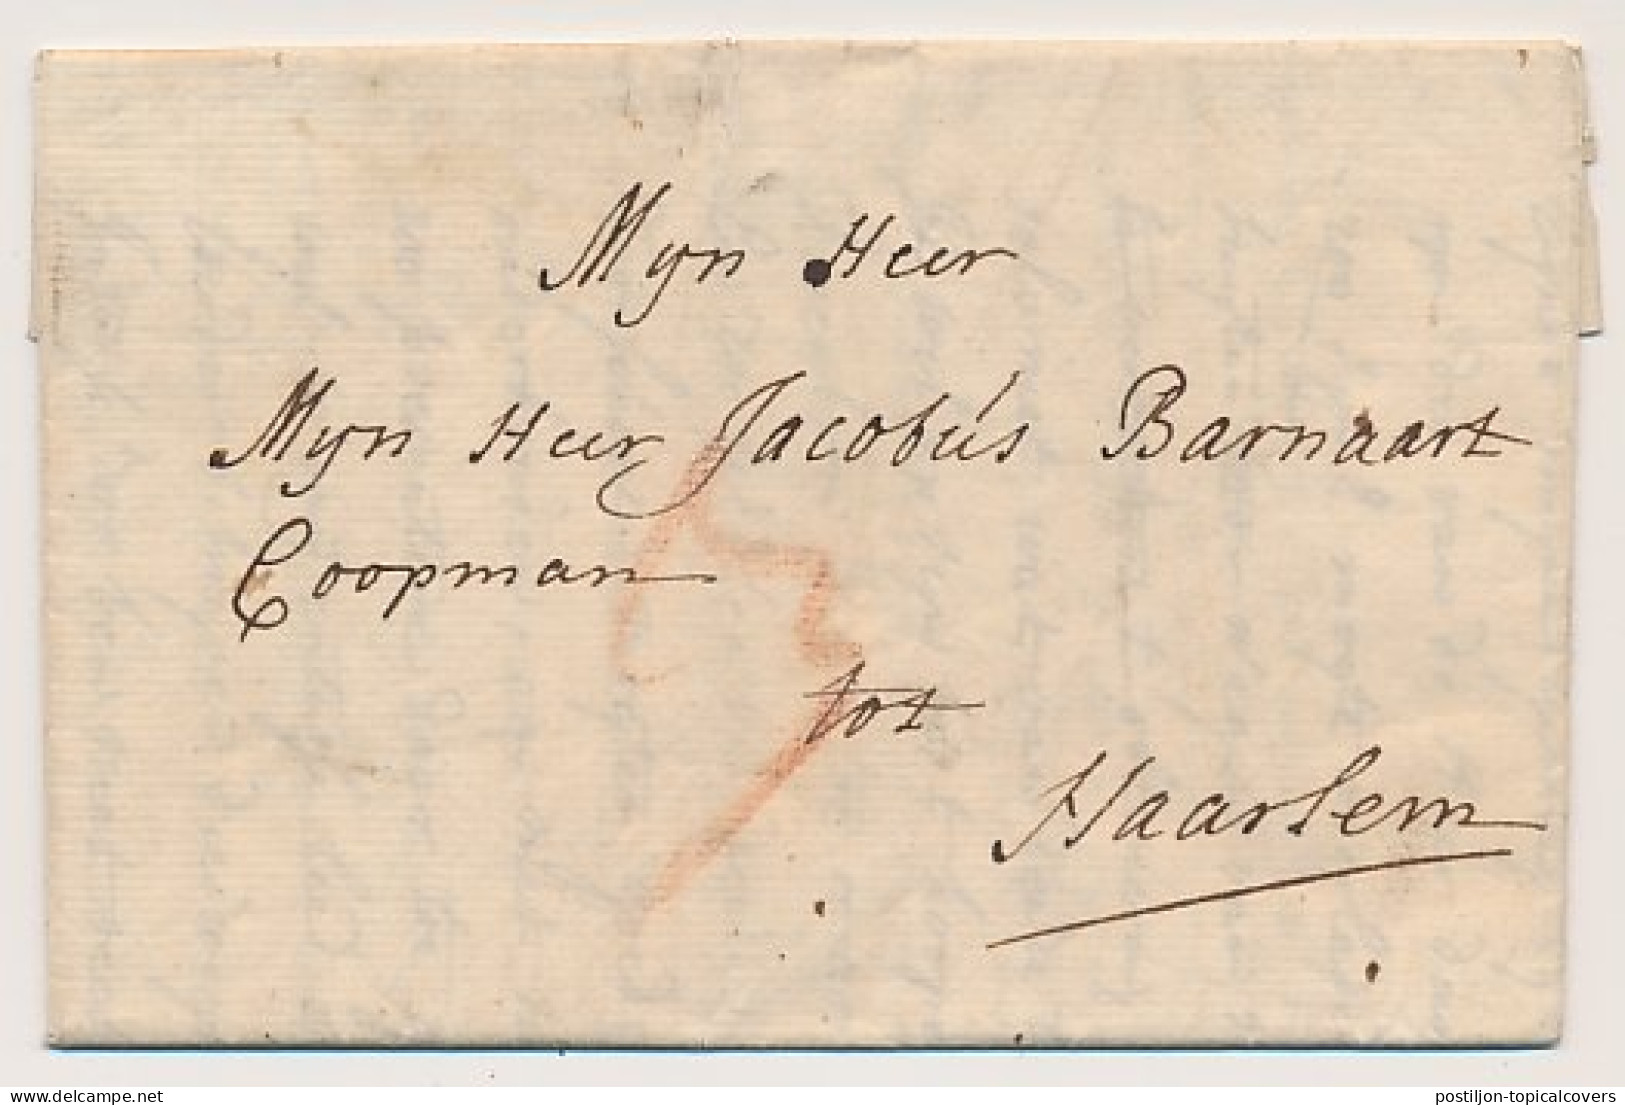 Mijn Heer
Mijn Heer Jacobús Barnaart
Coopman
tot
Haarlem
3
delcampe.net
postiljon-topicalcovers